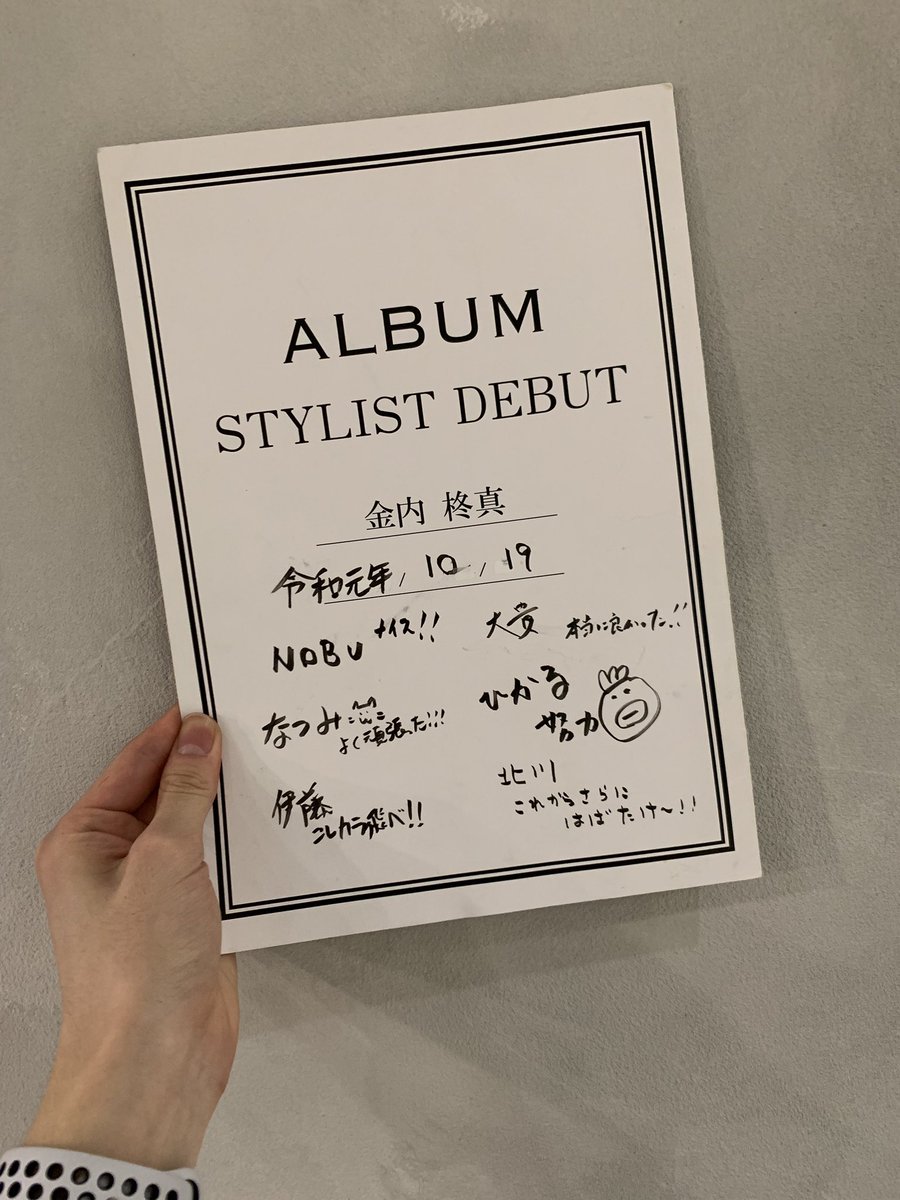 ALBUM
STYLIST DEBUT
金内 柊真
令和元年 / 10 / 19
NOBU ナイス!!
大貴 本当に良かった!!
なつみ よく頑張った!!!
ひかる
努力
伊藤
コレカラ飛べ!!
北川
これからさらに
はばたけ〜!!